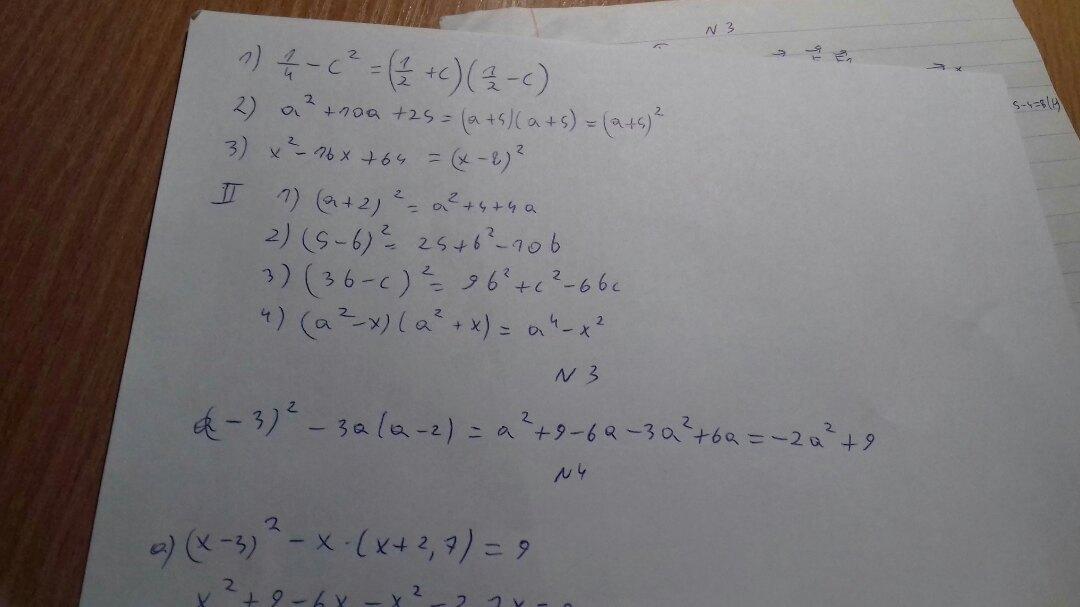 N 3
5-4=8(H)
1) 1/4 - c² = (1/2 + c)(1/2 - c)
2) a² + 10a + 25 = (a+5)(a+5) = (a+5)²
3) x² - 16x + 64 = (x-8)²
II 1) (a+2)² = a² + 4 + 4a
2) (5-b)² = 25 + b² - 10b
3) (3b-c)² = 9b² + c² - 6bc
4) (a² - x)(a² + x) = a⁴ - x²
N 3
(a-3)² - 3a(a-2) = a² + 9 - 6a - 3a² + 6a = -2a² + 9
N4
a) (x-3)² - x·(x+2,7) = 9
x² + 9 - 6x - x² - 2,7x =